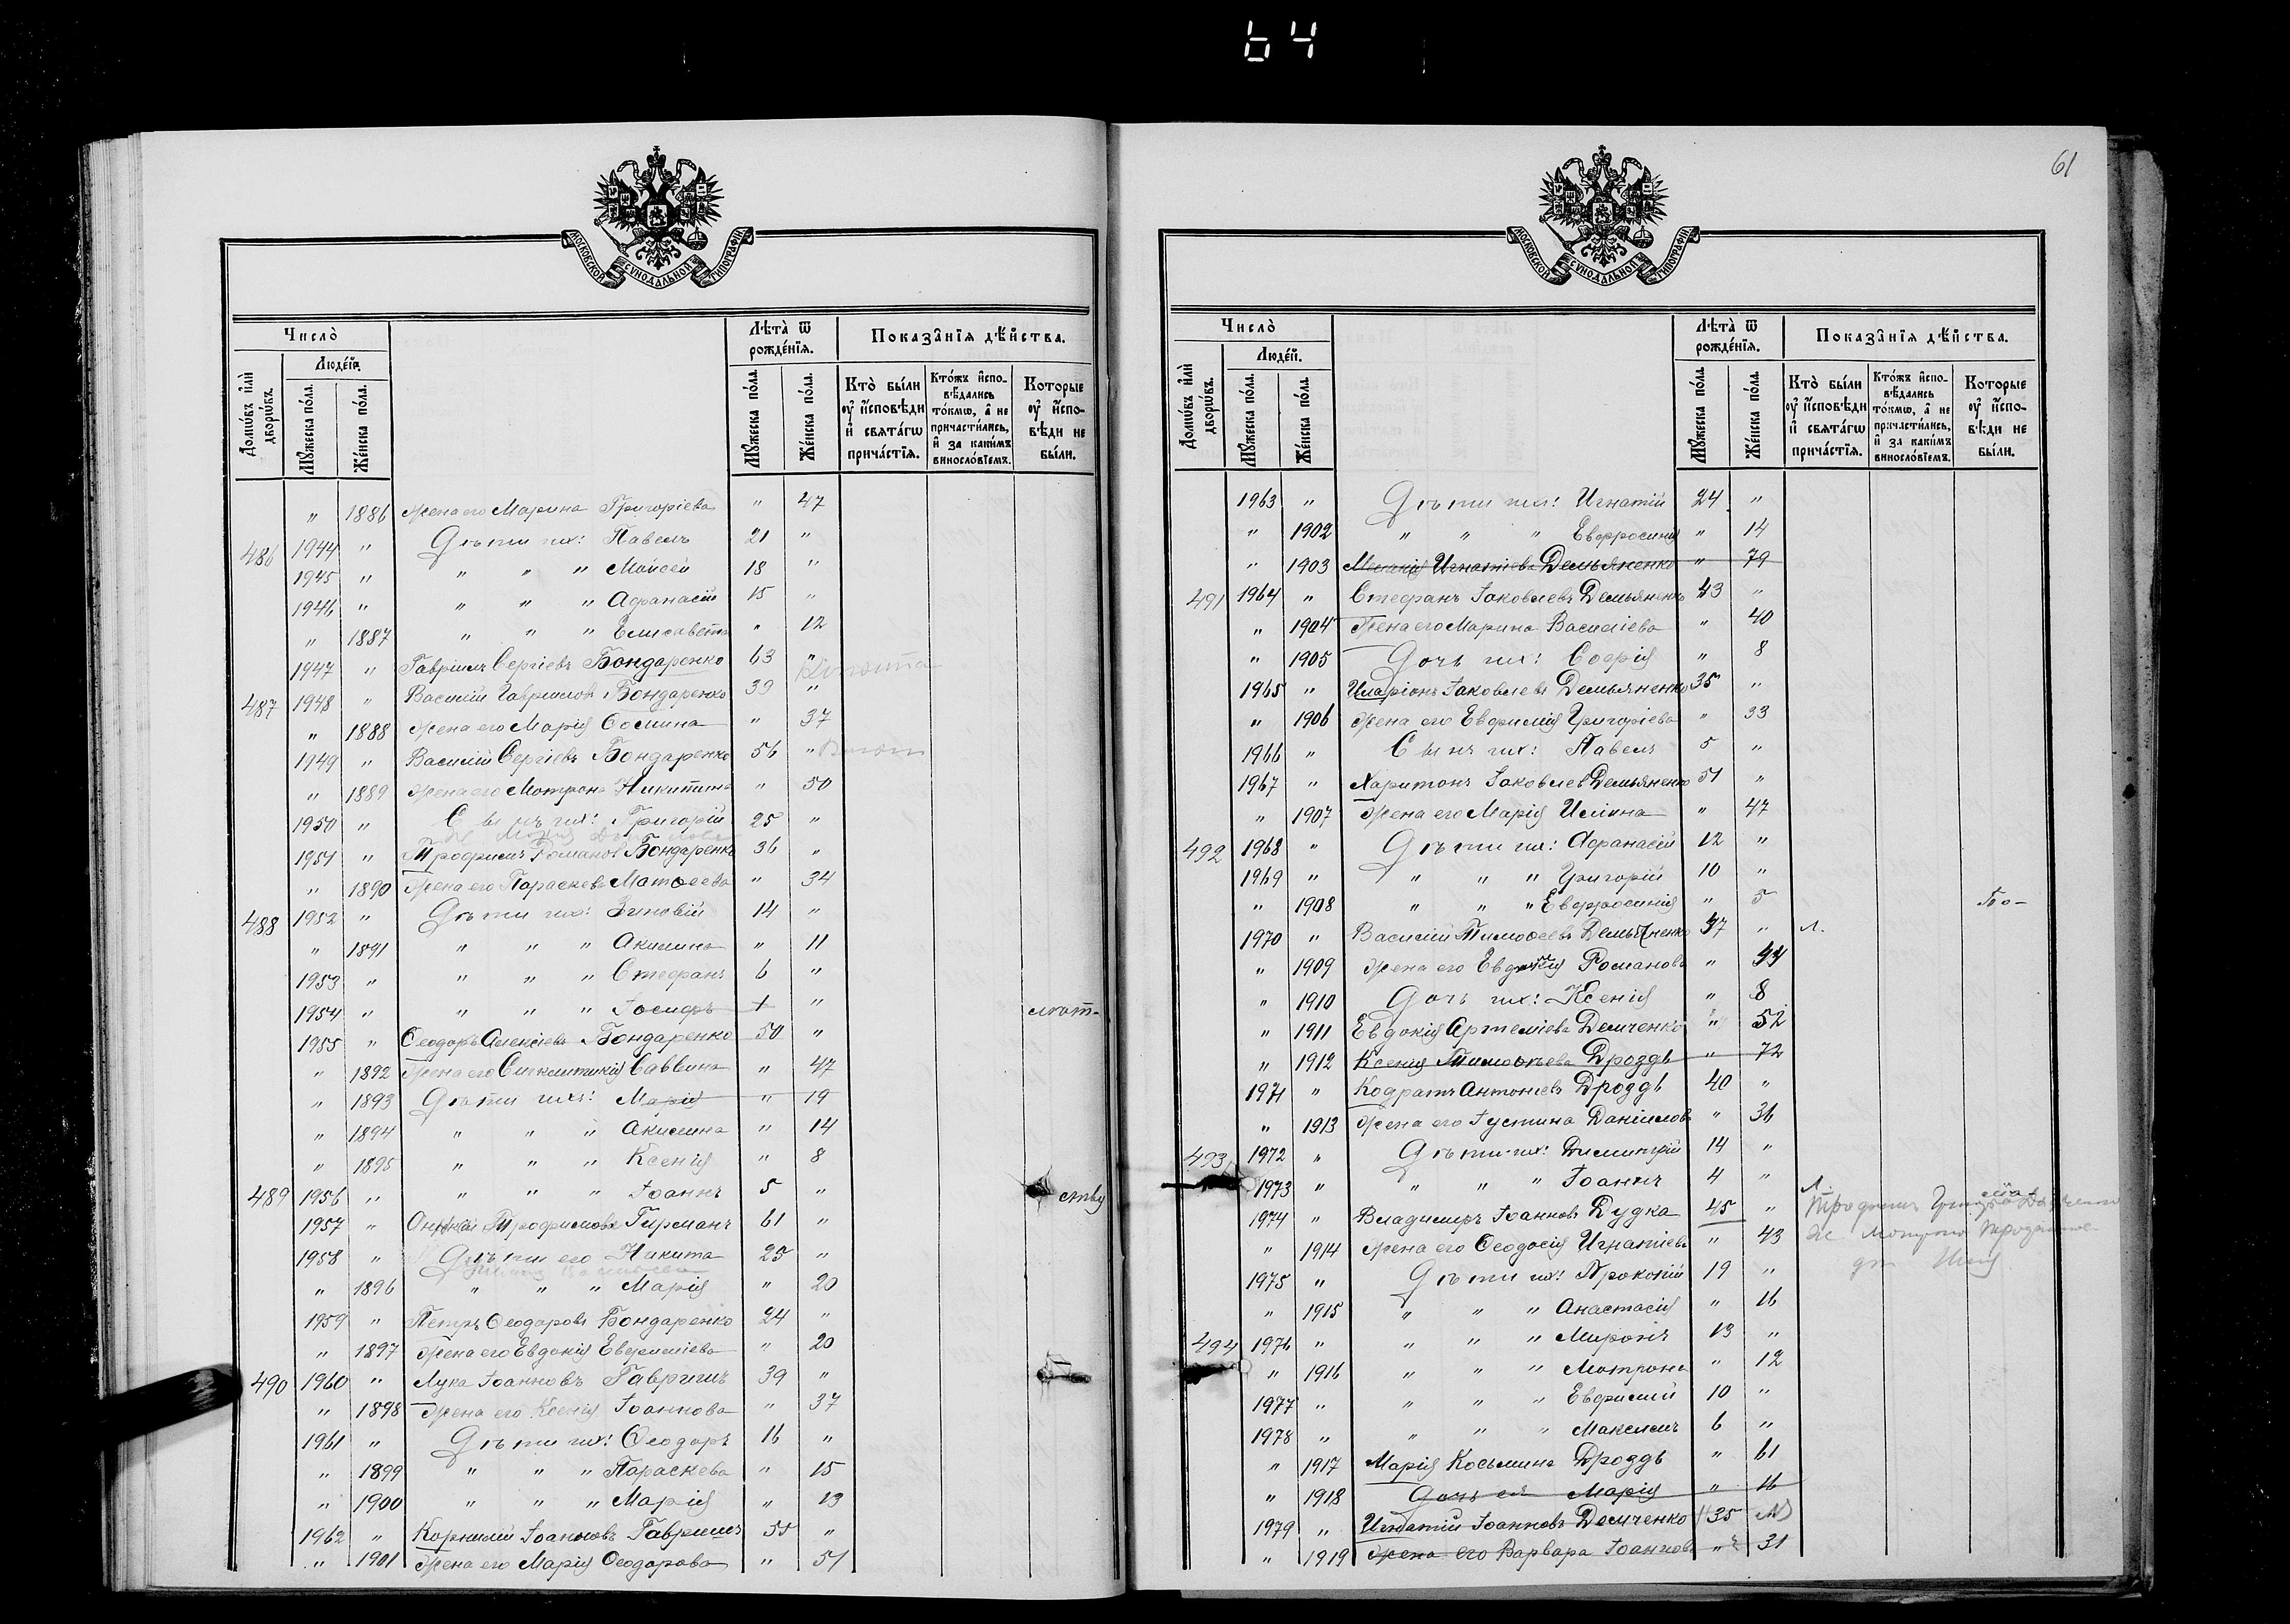 64
МОСКОВСКОЙ СУНОДАЛЬНОЙ ТИПОГРАФІИ
Число̀
Людéй.
Домѡ́въ и҆лѝ дворѡ́въ.
Мꙋ́жеска по́ла.
Же́нска по́ла.
Лѣта̀ ѿ рожде́нїѧ.
Мꙋ́жеска по́ла.
Же́нска по́ла.
Показа̂нїѧ дѣ́йства.
Кто̀ бы́ли ᲂу҆ и҆́сповѣди и҆ свѧта́гѡ прича́стїѧ.
Кто́жъ и҆спо-вѣ́дались то́кмѡ, а҆ не причасти́лись, и҆ за каки́мъ винослѡ́вїемъ.
Которые ᲂу҆ и҆́спо-вѣди не бы́ли.
" 1886 Жена его Марина Григоріева " 47
486 1944 " Дѣти их: Павелъ 21 "
1945 " " " " Мойсей 18 "
1946 " " " " Афанасій 15 "
" 1887 " " " Елисавета " 12
1947 " Гавріилъ Сергіевъ Бондаренко 63 "
487 1948 " Василій Гавриловъ Бондаренко 39 "
" 1888 Жена его Марія Ѳомина " 37
1949 " Василій Сергіевъ Бондаренко 56 "
" 1889 Жена его Мотрона Никитина " 50
1950 " Сынъ их: Григорій 25 "
1951 " Трофимъ Романовъ Бондаренко 36 "
" 1890 Жена его Параскева Матѳеева " 34
488 1952 " Дѣти их: Зиновій 14 "
" 1891 " " " Акилина " 11
1953 " " " " Стефанъ 6 "
1954 " " " " Іосифъ 1 " слют-
1955 " Ѳеодоръ Алексіевъ Бондаренко 50 "
" 1892 Жена его Синклитикія Саввина " 47
" 1893 Дѣти ихъ: Марія " 19
" 1894 " " " Акилина " 14
" 1895 " " " Ксенія " 8
489 1956 " " " " Іоаннъ 5 " ству
1957 " Трофимовъ Гирманъ 61 "
1958 " Дѣти его Никита 25 "
" 1896 " " " Марія " 20
1959 " Петръ Ѳеодоровъ Бондаренко 24 "
" 1897 Жена его Евдокія Евфиміева " 20
490 1960 " Лука Іоанновъ Гавришъ 39 "
" 1898 Жена его Ксенія Іоаннова " 37
1961 " Дѣти их: Ѳеодоръ 16 "
" 1899 " " " Параскева " 15
" 1900 " " " Марія " 13
1962 " Корнилій Іоанновъ Гавришъ 55 "
" 1901 Жена его Марія Ѳеодорова " 51
61
МОСКОВСКОЙ СУНОДАЛЬНОЙ ТИПОГРАФІИ
Число̀
Людéй.
Домѡ́въ и҆лѝ дворѡ́въ.
Мꙋ́жеска по́ла.
Же́нска по́ла.
Лѣта̀ ѿ рожде́нїѧ.
Мꙋ́жеска по́ла.
Же́нска по́ла.
Показа̂нїѧ дѣ́йства.
Кто̀ бы́ли ᲂу҆ и҆́сповѣди и҆ свѧта́гѡ прича́стїѧ.
Кто́жъ и҆спо-вѣ́дались то́кмѡ, а҆ не причасти́лись, и҆ за каки́мъ винослѡ́вїемъ.
Которые ᲂу҆ и҆́спо-вѣди не бы́ли.
1963 " Дѣти их: Игнатій 24 "
" 1902 " " " Евфросинія " 14
" 1903 Меланія Игнатіева Демьяненко " 79
491 1964 " Стефанъ Іаковлевъ Демьяненко 43 "
" 1904 Жена его Марина Василіева " 40
" 1905 Дочь их: Софія " 8
1965 " Иларіонъ Іаковлевъ Демьяненко 35 "
" 1906 Жена его Евфимія Григоріева " 33
1966 " Сынъ их: Павелъ 5 "
1967 " Харитонъ Іаковлев Демьяненко 51 "
" 1907 Жена его Марія Иліина " 47
492 1968 " Дѣти их: Афанасій 12 "
1969 " " " " Григорій 10 "
" 1908 " " " Евфросинія " 5 Бо-
1970 " Василій Тимоѳеевъ Демьяненко 47 " Л.
" 1909 Жена его Евдокія Романова " 44
" 1910 Дочь их: Ксенія " 8
" 1911 Евдокія Артеміева Демченко " 52
" 1912 Ксенія Тимоѳеева Дроздъ " 72
1971 " Кодратъ Антоніевъ Дроздъ 40 "
" 1913 Жена его Іустина Даніилова " 36
493 1972 " Дѣти их: Димитрій 14 "
1973 " " " " Іоаннъ 4 "
1974 " Владимиръ Іоанновъ Дудка 45 " Л.
" 1914 Жена его Ѳеодосія Игнатіева " 43
1975 " Дѣти их: Прокопій 19 "
" 1915 " " " Анастасія " 16
494 1976 " " " " Миронъ 13 "
" 1916 " " " Мотрона " 12
1977 " " " " Евфимій 10 "
1978 " " " " Максимъ 6 "
" 1917 Марія Косьмина Дроздъ " 61
" 1918 Дочь ея Марія " 16
1979 " Игнатій Іоанновъ Демченко 35
" 1919 Жена его Варвара Іоаннова " 31